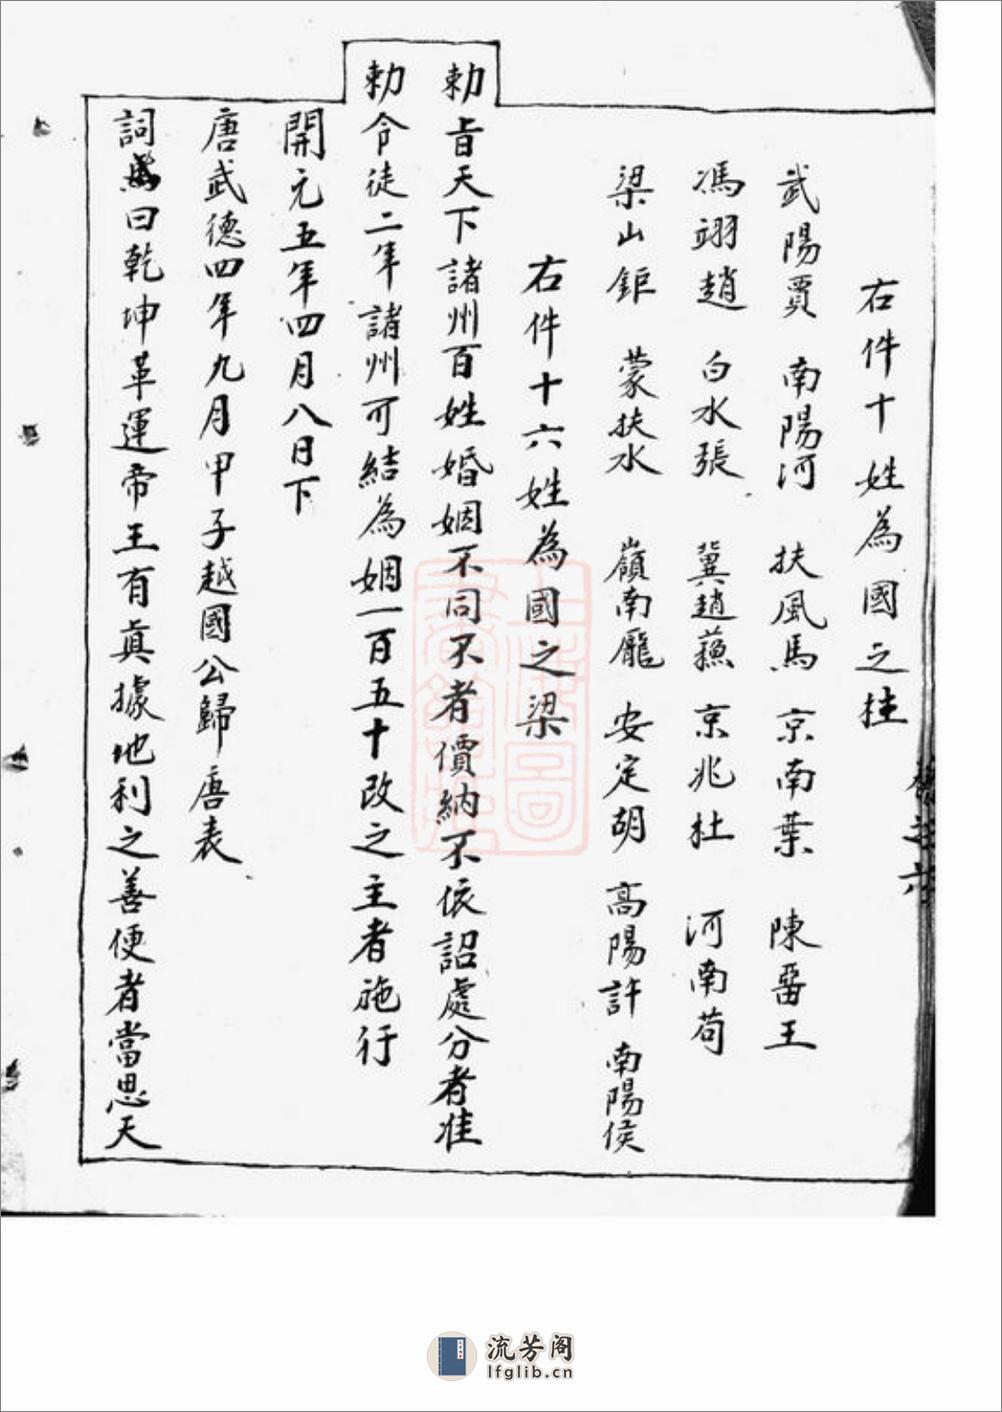 右件十姓為國之柱
武陽賈 南陽河 扶風馬 京南葉 陳留王
馮翊趙 白水張 冀趙蘓 京兆杜 河南苟
梁山鉅 蒙扶水 嶺南龐 安定胡 高陽許 南陽侯
右件十六姓為國之梁
勅旨天下諸州百姓婚姻不同不者價納不依詔處分者准
勅令徒二年諸州可結為姻一百五十改之主者施行
開元五年四月八日下
唐武德四年九月甲子越國公歸唐表
詞曰乾坤革運帝王有真據地利之善便者當思天
上海圖書館藏
流芳阁
lfglib.cn